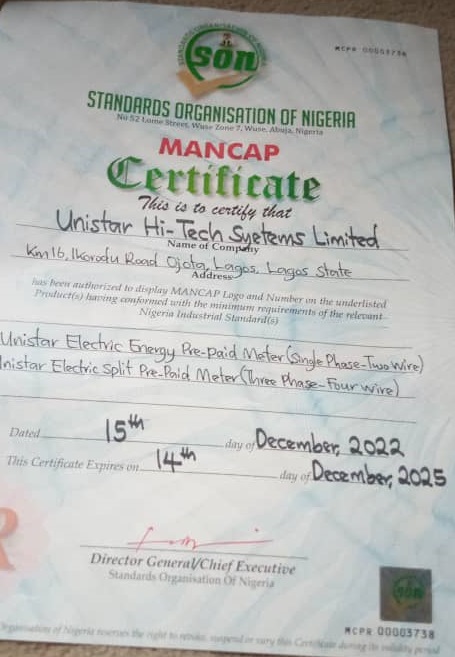 SON
MCPR 00003738
STANDARDS ORGANISATION OF NIGERIA
No 52 Lome Street, Wuse Zone 7, Wuse, Abuja, Nigeria
MANCAP
Certificate
This is to certify that
Unistar Hi-Tech Systems Limited
Name of Company
Km 16, Ikorodu Road Ojota, Lagos, Lagos State
Address
has been authorized to display MANCAP Logo and Number on the underlisted
Product(s) having conformed with the minimum requirements of the relevant
Nigeria Industrial Standard(s)
Unistar Electric Energy Pre-paid Meter (Single Phase-Two Wire)
nistar Electric Split Pre-Paid Meter (Three Phase-Four Wire)
Dated 15th day of December, 2022
This Certificate Expires on 14th day of December, 2025
Director General/Chief Executive
Standards Organisation Of Nigeria
SON
R
MCPR 00003738
Organisation of Nigeria reserves the right to revoke, suspend or vary this Certificate during its validity period